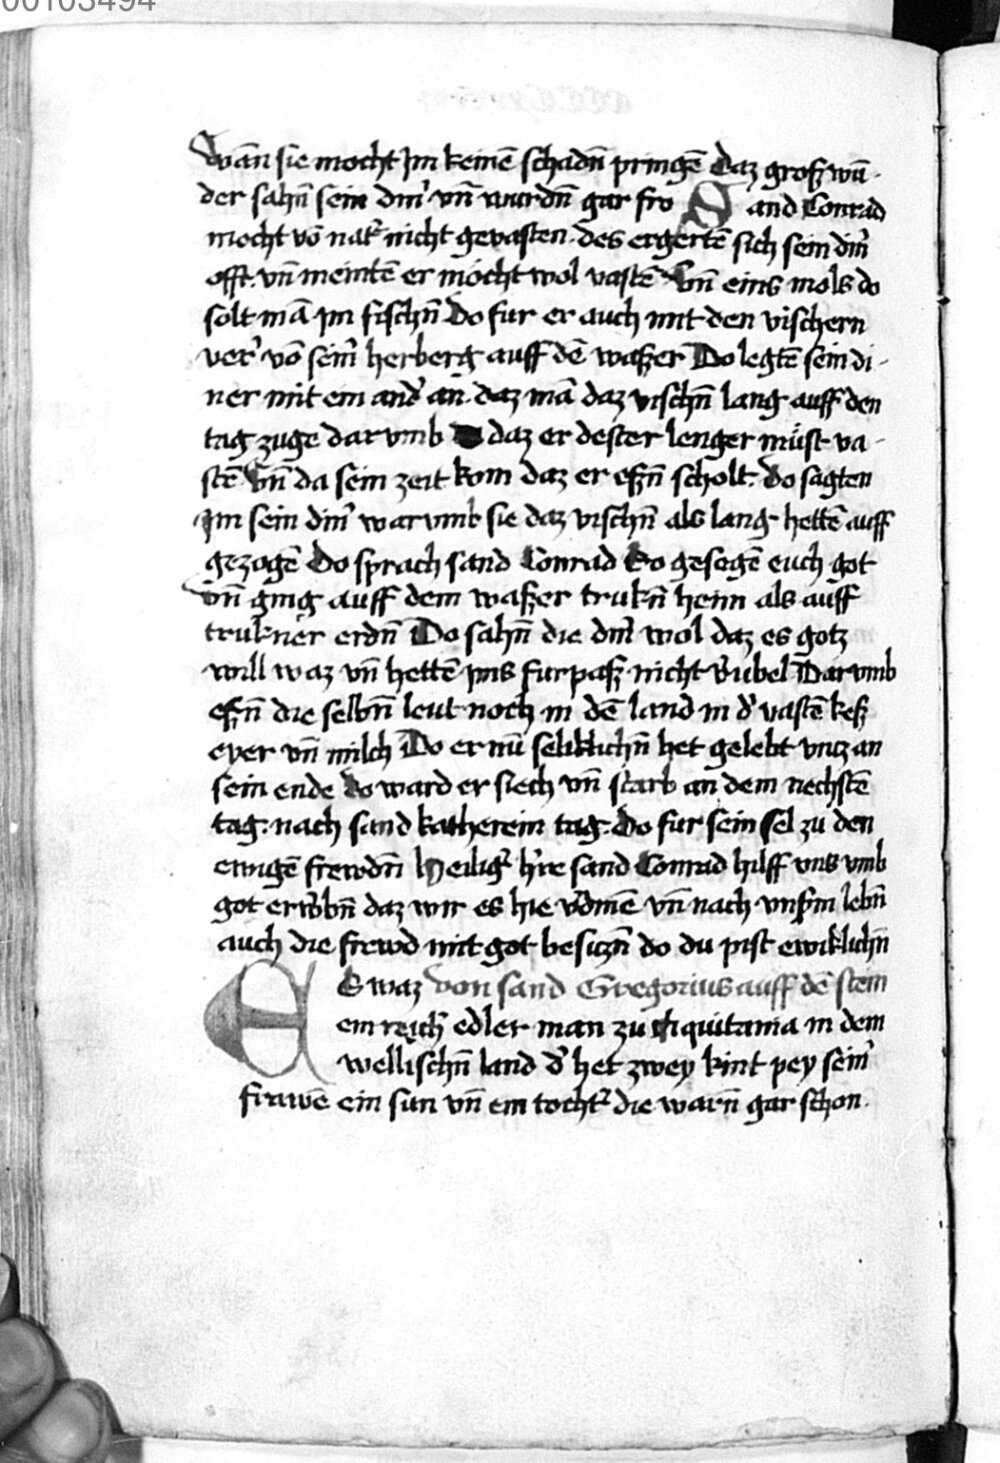 00103494
wan̄ sie mocht Im keinē schadn̄ pringē Daz groſz wū-
der sahn̄ sein din̄ vn̄ wurdn̄ gar fro Sand Conrad
mocht vō nat᷑ nicht gevasten. des ergertē sich sein din̄
offt. vn̄ meintē er möcht wol vastē Vn̄ eins mols do
solt mā im fischn̄ Do fur er auch mit den vischern
ver᷑ vō seim̄ herberg auff dē waſzer Do legtē sein di-
ner mit ein and᷑ an. daz mā daz vischn̄ lang auff den
tag zuge darvmb daz er dester lenger müst va-
stē Vn̄ da sein zeit kom daz er eſzn̄ scholt. do sagten
Im sein din̄ warvmb sie daz vischn̄ als lang hettē auff
gezogē Do sprach sand Conrad So gesegē euch got
vn̄ ging auff dem waſzer trukn̄ hein als auff
trukner erdn̄ Do sahn̄ die din̄ wol daz es gotz
will waz vn̄ hettē ims furpaſz nicht v᷑ubel Darvmb
eſzn̄ die selbn̄ leut noch in dē land in d᷑ vastē keſz
eyer vn̄ milch Do er nū seliklichn̄ het gelebt vntz an
sein ende do ward er siech vn̄ starb an dem nechstē
tag. nach sand katherein tag. Do fur sein sel zu den
ewigē frewdn̄ Heilig᷑ h᷑re sand Conrad hilff vns vmb
got erw᷑bn̄ daz wir es hie v᷑dinē vn̄ nach vnſ᷑m lebn̄
auch die frewd mit got besiczn̄ do du pist ewiklichn̄
ES waz von sand Gregorius auff dē stein
ein reich᷑ edler man zu Aquitania in dem
wellischn̄ land d᷑ het zwey kint pey sein᷑
frawē ein sun vn̄ ein tocht᷑ die warn̄ gar schon.